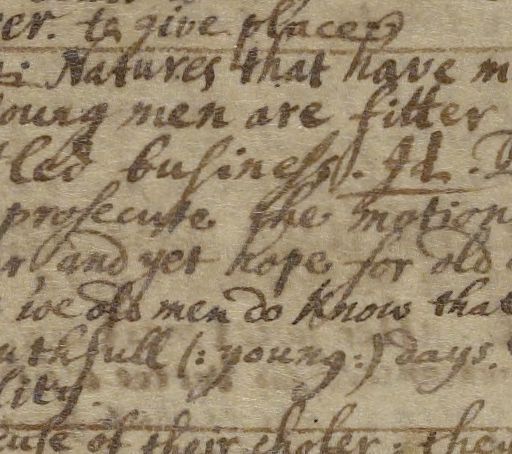 er. to give places
Natures that have m
oung men are fitter
led business. Id.
prosecute the motion
r and yet hope for old
we old men do know that
uthfull (: young :) days.
lity
cuse of their choler: they